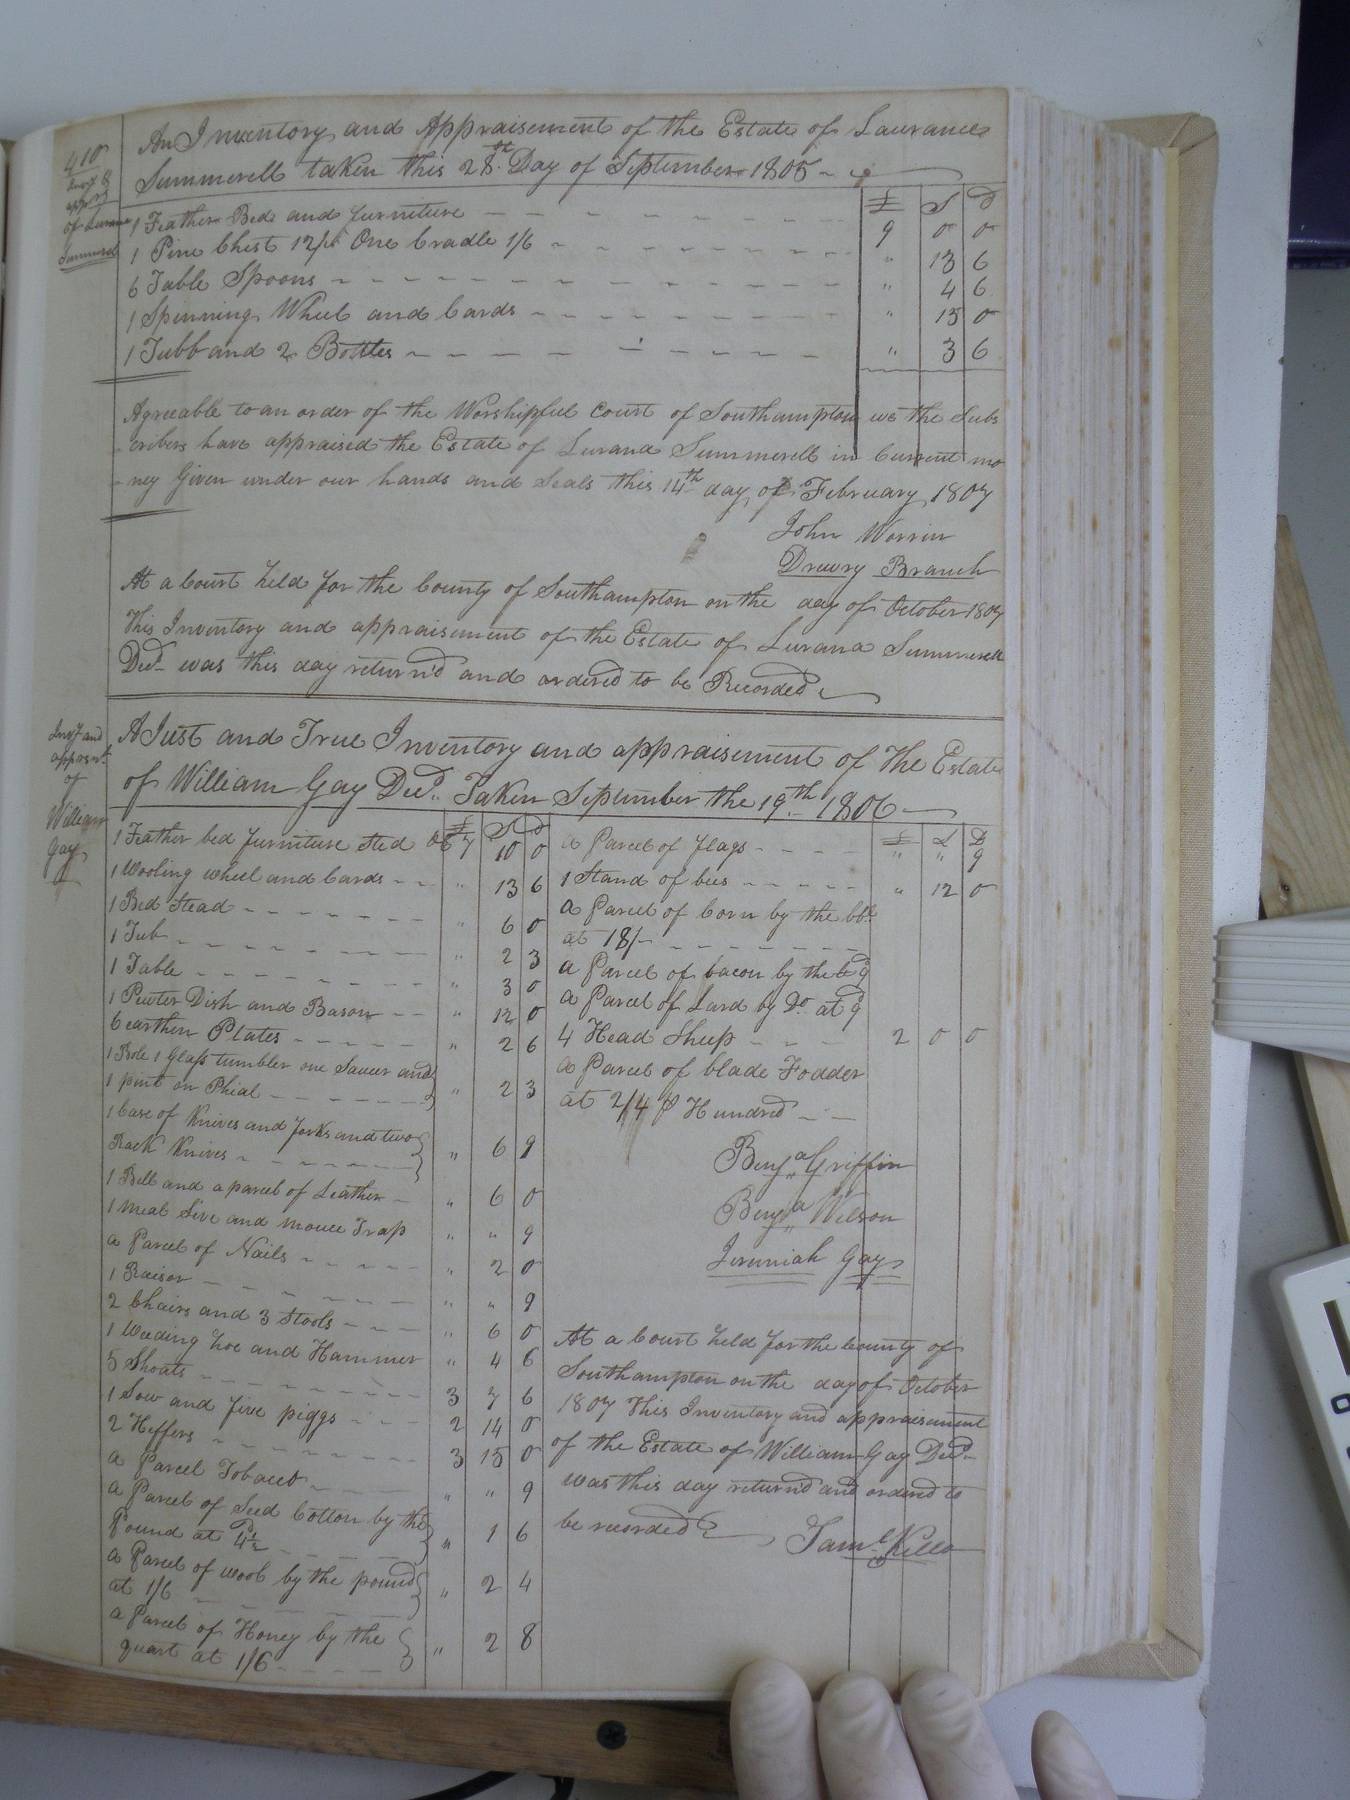 410
Invy &
apprst
of Lurana
Summerell
An Inventory and Appraisement of the Estate of Laurance
Summerell taken this 28th Day of September 1805
£ S D
1 Feather Bed and furniture 9 0 0
1 Pine Chest 12/ One Cradle 1/6 " 13 6
6 Table Spoons " 4 6
1 Spinning Wheel and Cards " 15 0
1 Tubb and 2 Bottles " 3 6
Agreeable to an order of the Worshipful Court of Southampton we the Subs
cribers have appraised the Estate of Lurana Summerell in Current mo
ney Given under our hands and Seals this 14th day of February 1807
John Worrin
Drewry Branch
At a Court held for the County of Southampton on the day of October 1807
This Inventory and appraisement of the Estate of Lurana Summerell
Decd was this day return'd and ordered to be Recorded
Invy and
apprsmt
of
William
Gay
A Just and True Inventory and appraisement of The Estate
of William Gay Decd. Taken September the 19th 1806
£ S D
1 Feather bed furniture sted &c 7 10 0
1 Wooling wheel and Cards " 13 6
1 Bed stead " 6 0
1 Tub " 2 3
1 Table " 3 0
1 Pewter Dish and Bason " 12 0
6 earthen Plates " 2 6
1 Bole 1 Glass tumbler one Saucer and
1 pint on Phial " 2 3
1 Case of Knives and forks and two
Rack Knives " 6 9
1 Bell and a parcel of Leather " 6 0
1 meal Sive and mouce Trap " " 9
a Parcel of Nails " 2 0
1 Raisor " " 9
2 Chairs and 3 Stools " 6 0
1 Weeding hoe and Hammer " 4 6
5 Shoats 3 7 6
1 Sow and five piggs 2 14 0
2 Heffers 3 15 0
a Parcel Tobacco " " 9
a Parcel of Seed Cotton by the
Pound at 4½ " 1 6
a Parcel of wool by the pound
at 1/6 " 2 4
a Parcel of Honey by the
quart at 1/6 " 2 8
£ S D
a Parcel of flags " " 9
1 Stand of bees " 12 0
a Parcel of Corn by the bbl
at 18/
a Parcel of bacon by the lb 9
a Parcel of Lard by Do at 9
4 Head Sheep 2 0 0
a Parcel of blade Fodder
at 2/4 ⅌ Hundred
Benja Griffin
Benja Wilson
Jeremiah Gay
At a Court held for the County of
Southampton on the day of October
1807 This Inventory and appraisement
of the Estate of William Gay Decd
was this day return'd and ordered to
be recorded
Saml Kello